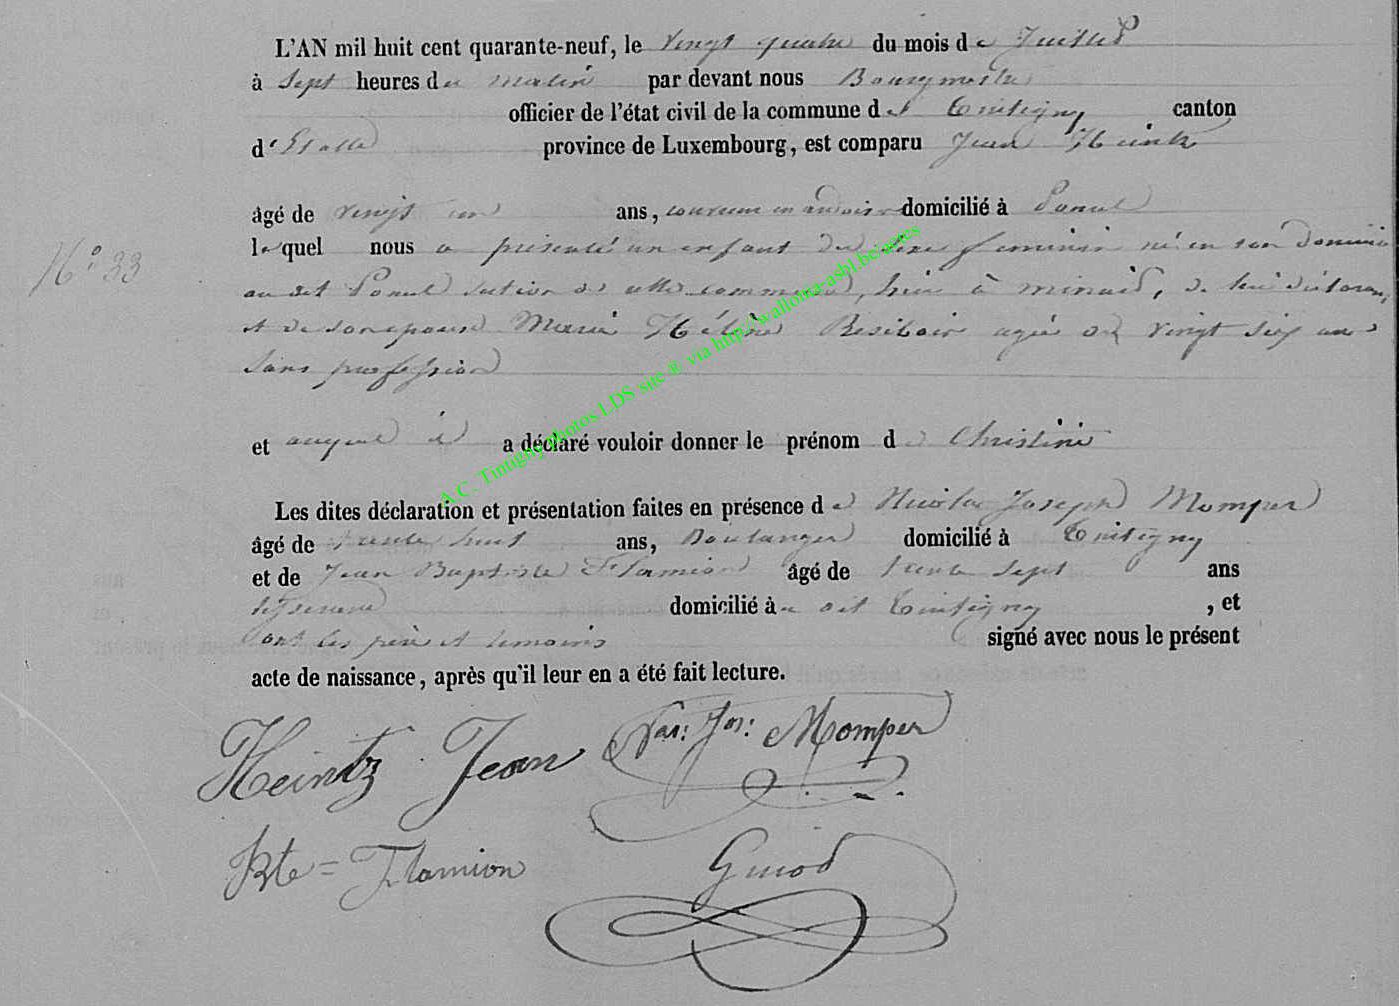 L'AN mil huit cent quarante-neuf, le vingt quatre du mois de Juillet
à Sept heures du matin par devant nous Bourgmestre
officier de l'état civil de la commune de Tintigny canton
d'Etalle province de Luxembourg, est comparu Jean Heintz
âgé de vingt un ans, domicilié à Ponsel
lequel nous a présenté un enfant du sexe féminin né en son domicile
au dit Ponsel section de cette commune, hier à minuit, de lui déclarant
et de son épouse Marie Hélène agée de vingt six ans
Sans profession
et auquel il a déclaré vouloir donner le prénom de Christine
Les dites déclaration et présentation faites en présence de Nicolas Joseph Momper
âgé de trente huit ans, Boulanger domicilié à Tintigny
et de Jean Baptiste Flamion âgé de trente sept ans
domicilié à u dit Tintigny, et
ont les père et témoins signé avec nous le présent
acte de naissance, après qu'il leur en a été fait lecture.
N° 33
Heintz Jean
Jos: Momper
Bte = Flamion
Guiod
A.C. Tintigny photos LDS site ® via http://wallonia-asbl.be/actes